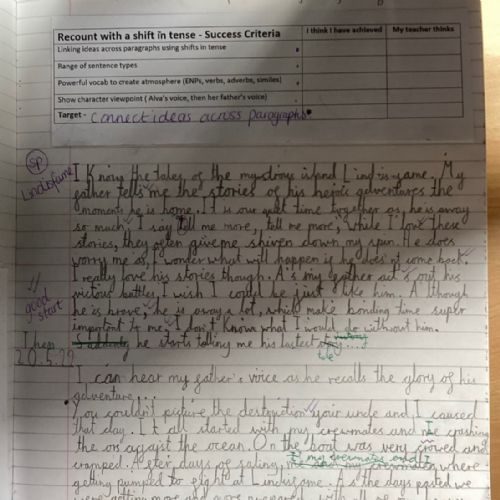 Recount with a shift in tense - Success Criteria
I think I have achieved
My teacher thinks
Linking ideas across paragraphs using shifts in tense
Range of sentence types
Powerful vocab to create atmosphere (ENPs, verbs, adverbs, similes)
Show character viewpoint (Alva's voice, then her father's voice)
Target - Connect ideas across paragraphs
sp
Lindisfarne
I Know the tales of the mystroys island Lindisyame. My
father tells me the stories of his heroic adventures the
moments he is home. It is our quiet time together as, he is away
so much, I say tell me more, tell me more, while I love these
stories, they often give me shivers down my spin. He does
worry me as, I wonder what will happen if he does'nt come back.
I really love his stories though. As my father act's out his
victious battles, I wish I could be just like him. Although
he is brave, he is away a lot, which make bonding time super
important to me, I don't know what I would do without him.
good start
he starts telling me his lastest
I can hear my father's voice as he recalls the glory of his
adventure...
You couldn't picture the destruction your uncle and I caused
that day. It all started with my crewmates and me crashing
the ors against the ocean. On the boat was very crowed and
cramped. After days of saling, where
getting pumped to fight at Lindisfame. As the days passed we
were getting more and more prepared with all of